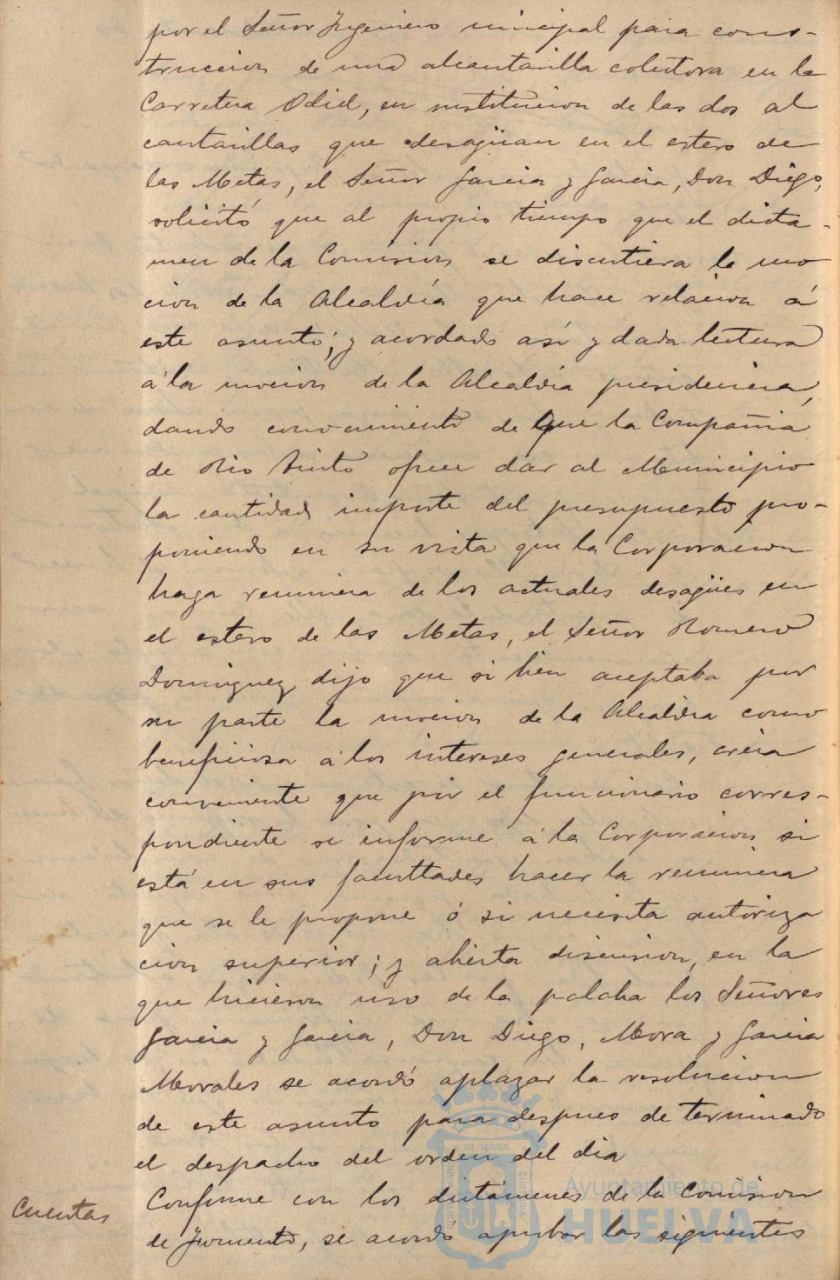 por el Señor Ingeniero municipal para cons-
truccion de una alcantarilla colectora en la
Carretera Odiel, en sustitucion de las dos al
cantarillas que desagüan en el estero de
las Metas, el Señor Garcia y Garcia, Don Diego,
solicitó que al propio tiempo que el dicta-
men de la Comision se discutiera la mo
cion de la Alcaldía que hace relacion á
este asunto; y acordado así y dada lectura
á la mocion de la Alcaldia presidencia,
dando conocimiento de que la Compañia
de Rio Tinto ofrece dar al Municipio
la cantidad importe del presupuesto pro-
poniendo en su vista que la Corporacion
haga renuncia de los actuales desagües en
el estero de las Metas, el Señor Romero
Dominguez dijo que si bien aceptaba por
su parte la mocion de la Alcaldia como
beneficiosa á los intereses generales, creia
conveniente que por el funcionario corres-
pondiente se informe á la Corporacion si
está en sus facultades hacer la renuncia
que se le propone ó si necesita autoriza
cion superior; y abierta discusion, en la
que hicieron uso de la palaba los Señores
Garcia y Garcia, Don Diego, Mora y Garcia
Morrales se acordó aplazar la resolucion
de este asunto para despues de terminado
el despacho del orden del dia
Cuentas
Conforme con los dictámenes de la Comision
de Fomento, se acordó aprobar las siguientes
Ayuntamiento de
HUELVA